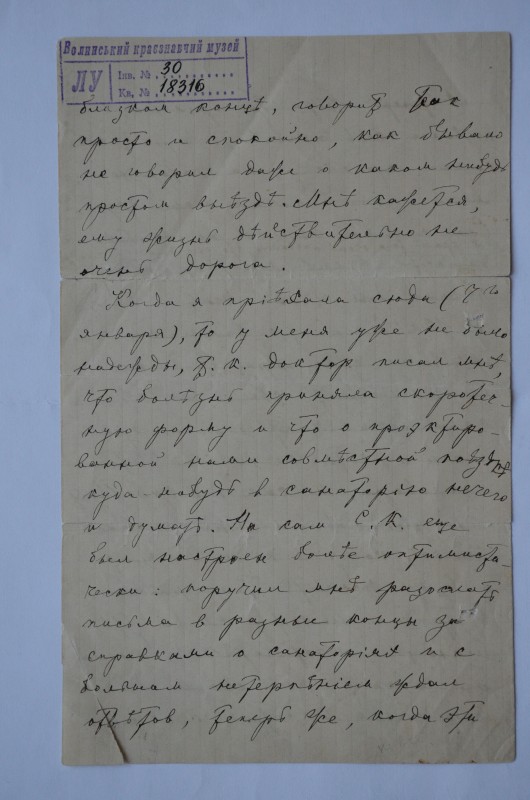 Волинський краєзнавчий музей
ЛУ
Інв. № 30
Кв. № 18316
близком концѣ, говоритъ так
просто и спокойно, как бывало
не говорил даже о каком нибудь
простом выѣздѣ. Мнѣ кажется,
ему жизнь дѣйствительно не
очень дорога.
Когда я пріѣхала сюда (7го
января), то у меня уже не было
надежды, т. к. доктор писал мнѣ,
что болѣзнь приняла скоротеч-
ную форму и что о проэктиро-
ванной нами совмѣстной поѣздкѣ
куда-нибудь в санаторію нечего
и думать. Но сам С. К. еще
был настроен болѣе оптимисти-
чески: поручил мнѣ разослать
письма в разные концы за
справками о санаторіях и с
большам нетерпѣніем ждал
отвѣтов, теперь же, когда эти